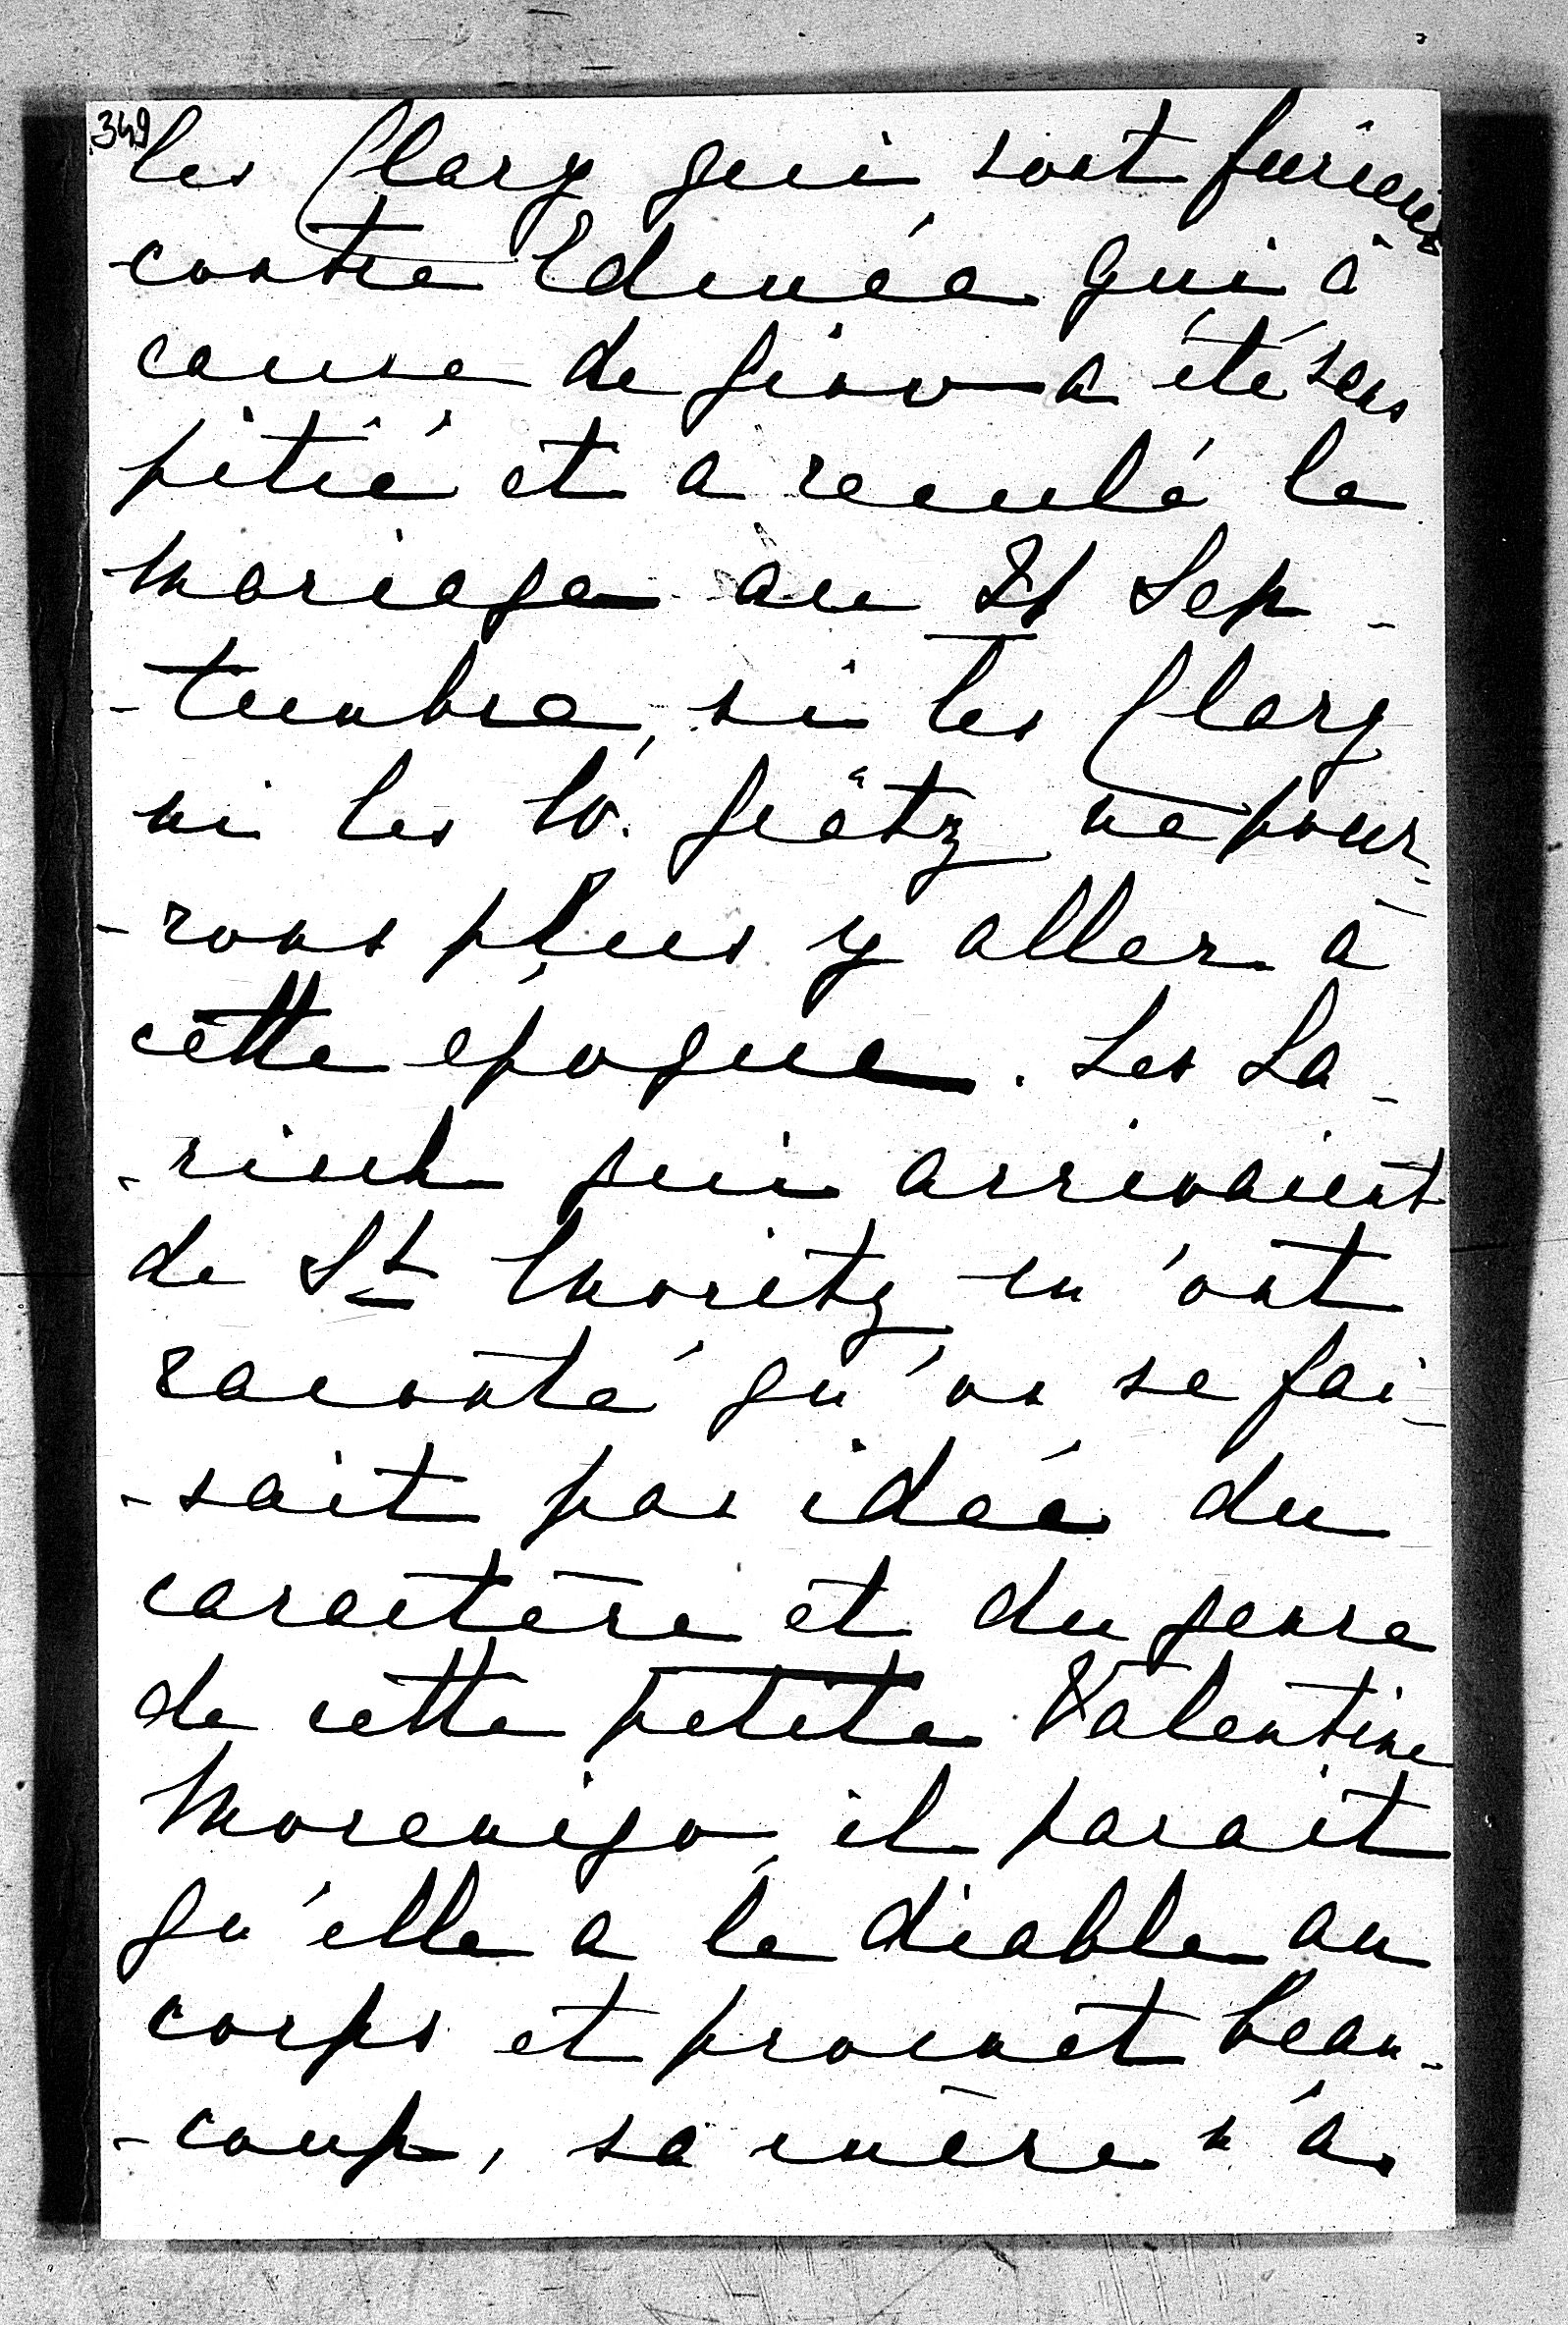 349
les Clary qui sont furieux
contre Edmée qui à
cause de Giov a été sans
pitié et a reculé le
mariage au 21 Sep-
-tembre, ni les Clary
ni les W. Grätz ne pour-
-rons plus y aller à
cette époque. Les La-
-risch qui arrivaient
de St Moritz m'ont
raconté qu'on se fai-
-sait pas idée du
caractère et du genre
de cette petite Valentine
Morenigo, il parait
qu'elle a le diable au
corps et promet beau-
-coup, sa mère n'a